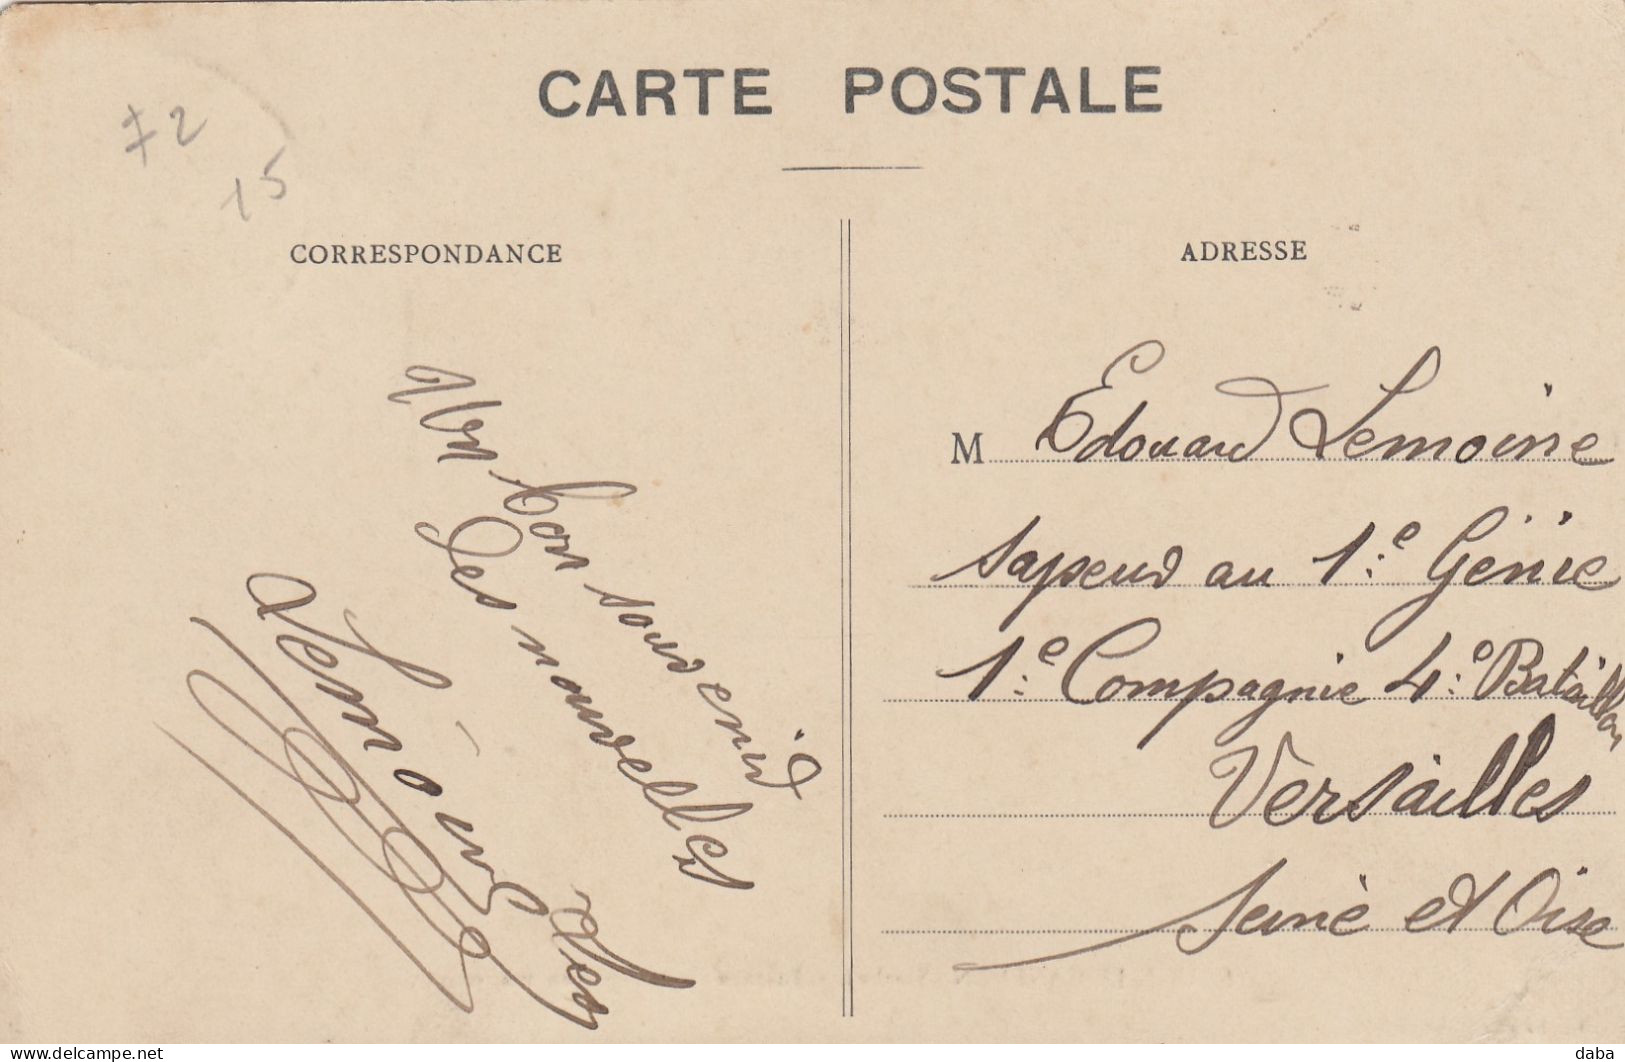 CARTE POSTALE
72
15
CORRESPONDANCE
Un bon souvenir
Des nouvelles
Lemoine
ADRESSE
M Edouard Lemoine
sapeur au 1.e Génie
1.e Compagnie 4.e Bataillon
Versailles
Seine et Oise
delcampe.net
daba